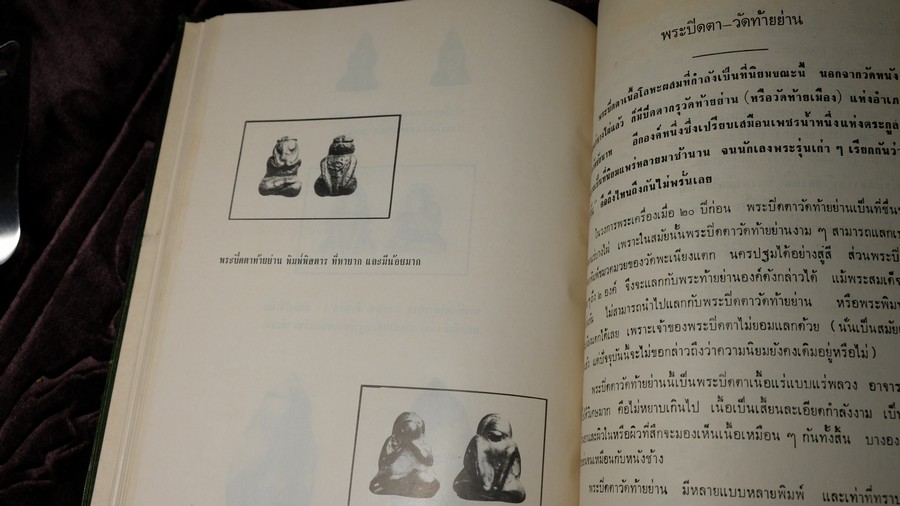 พระปิดตาท้ายย่าน พิมพ์พิสดาร ที่หายาก และมีน้อยมาก
พระปิดตา-วัดท้ายย่าน
พระปิดตาเนื้อโลหะผสมที่กำลังเป็นที่นิยมขณะนี้ นอกจากวัดหนัง
แล้ว ก็มีปิดตากรุวัดท้ายย่าน (หรือวัดท้ายเมือง) แห่งอำเภ
อีกองค์หนึ่งซึ่งเปรียบเสมือนเพชรน้ำหนึ่งแห่งตระกูล
เป็นที่นิยมแพร่หลายมาช้านาน จนนักเลงพระรุ่นเก่า ๆ เรียกกันว่า
ถือถึงไหนถึงกันไม่พรั่นเลย
ในวงการพระเครื่องเมื่อ ๒๐ ปีก่อน พระปิดตาวัดท้ายย่านเป็นที่ชื่น
เพราะในสมัยนั้นพระปิดตาวัดท้ายย่านงาม ๆ สามารถแลก
ของวัดพะเนียงแตก นครปฐมได้อย่างสู่สี ส่วนพระปิ
๒ องค์ จึงจะแลกกับพระท้ายย่านองค์ดังกล่าวได้ แม้พระสมเด็จ
ไม่สามารถนำไปแลกกับพระปิดตาวัดท้ายย่าน หรือพระพิม
ได้เลย เพราะเจ้าของพระปิดตาไม่ยอมแลกด้วย (นั่นเป็นสมัย
แต่ปัจจุบันนี้จะไม่ขอกล่าวถึงว่าความนิยมยังคงเดิมอยู่หรือไม่)
พระปิดตาวัดท้ายย่านนี้เป็นพระปิดตาเนื้อแร่แบบแร่พลวง อาจาร
คือไม่หยาบเกินไป เนื้อเป็นเสี้ยนละเอียดกำลังงาม เป็
และผิวในหรือผิวที่สึกจะมองเห็นเนื้อเหมือน ๆ กันทั้งสิ้น บางอง
เหมือนกับหนังช้าง
พระปิดตาวัดท้ายย่าน มีหลายแบบหลายพิมพ์ และเท่าที่ทราบ